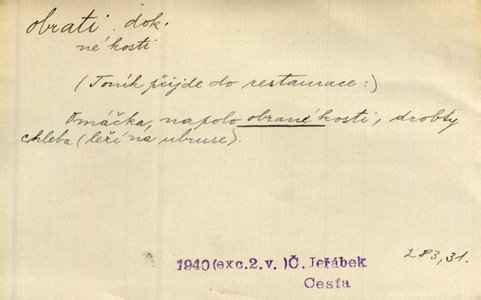 obrati dok.
né kosti
(Toník přijde do restaurace:)
Omáčka, napolo obrané kosti, drobty
chleba (leží na ubruse).
283,31.
1940(exc.2.v. )Č. Jeřábek
Cesta